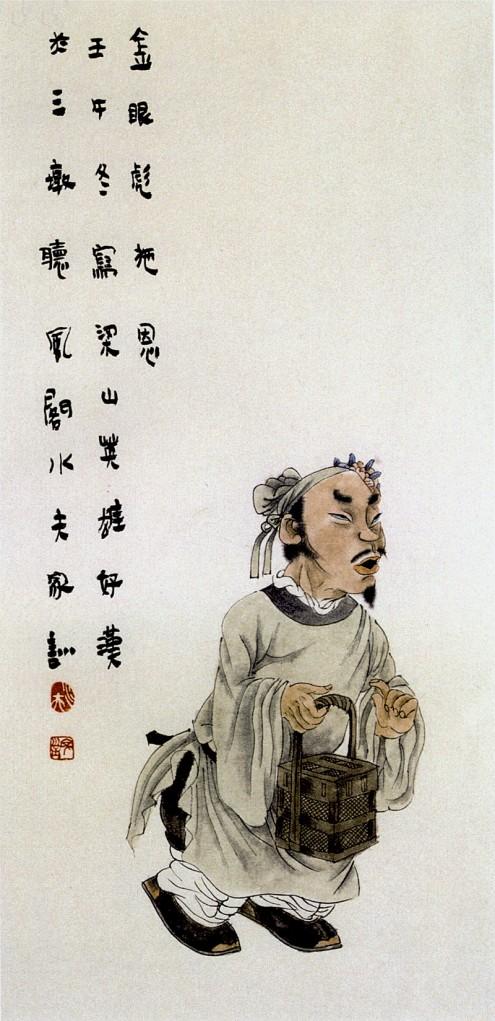 金眼彪施恩
壬午冬寫梁山英雄好漢
於三墩聽風閣水夫家訓